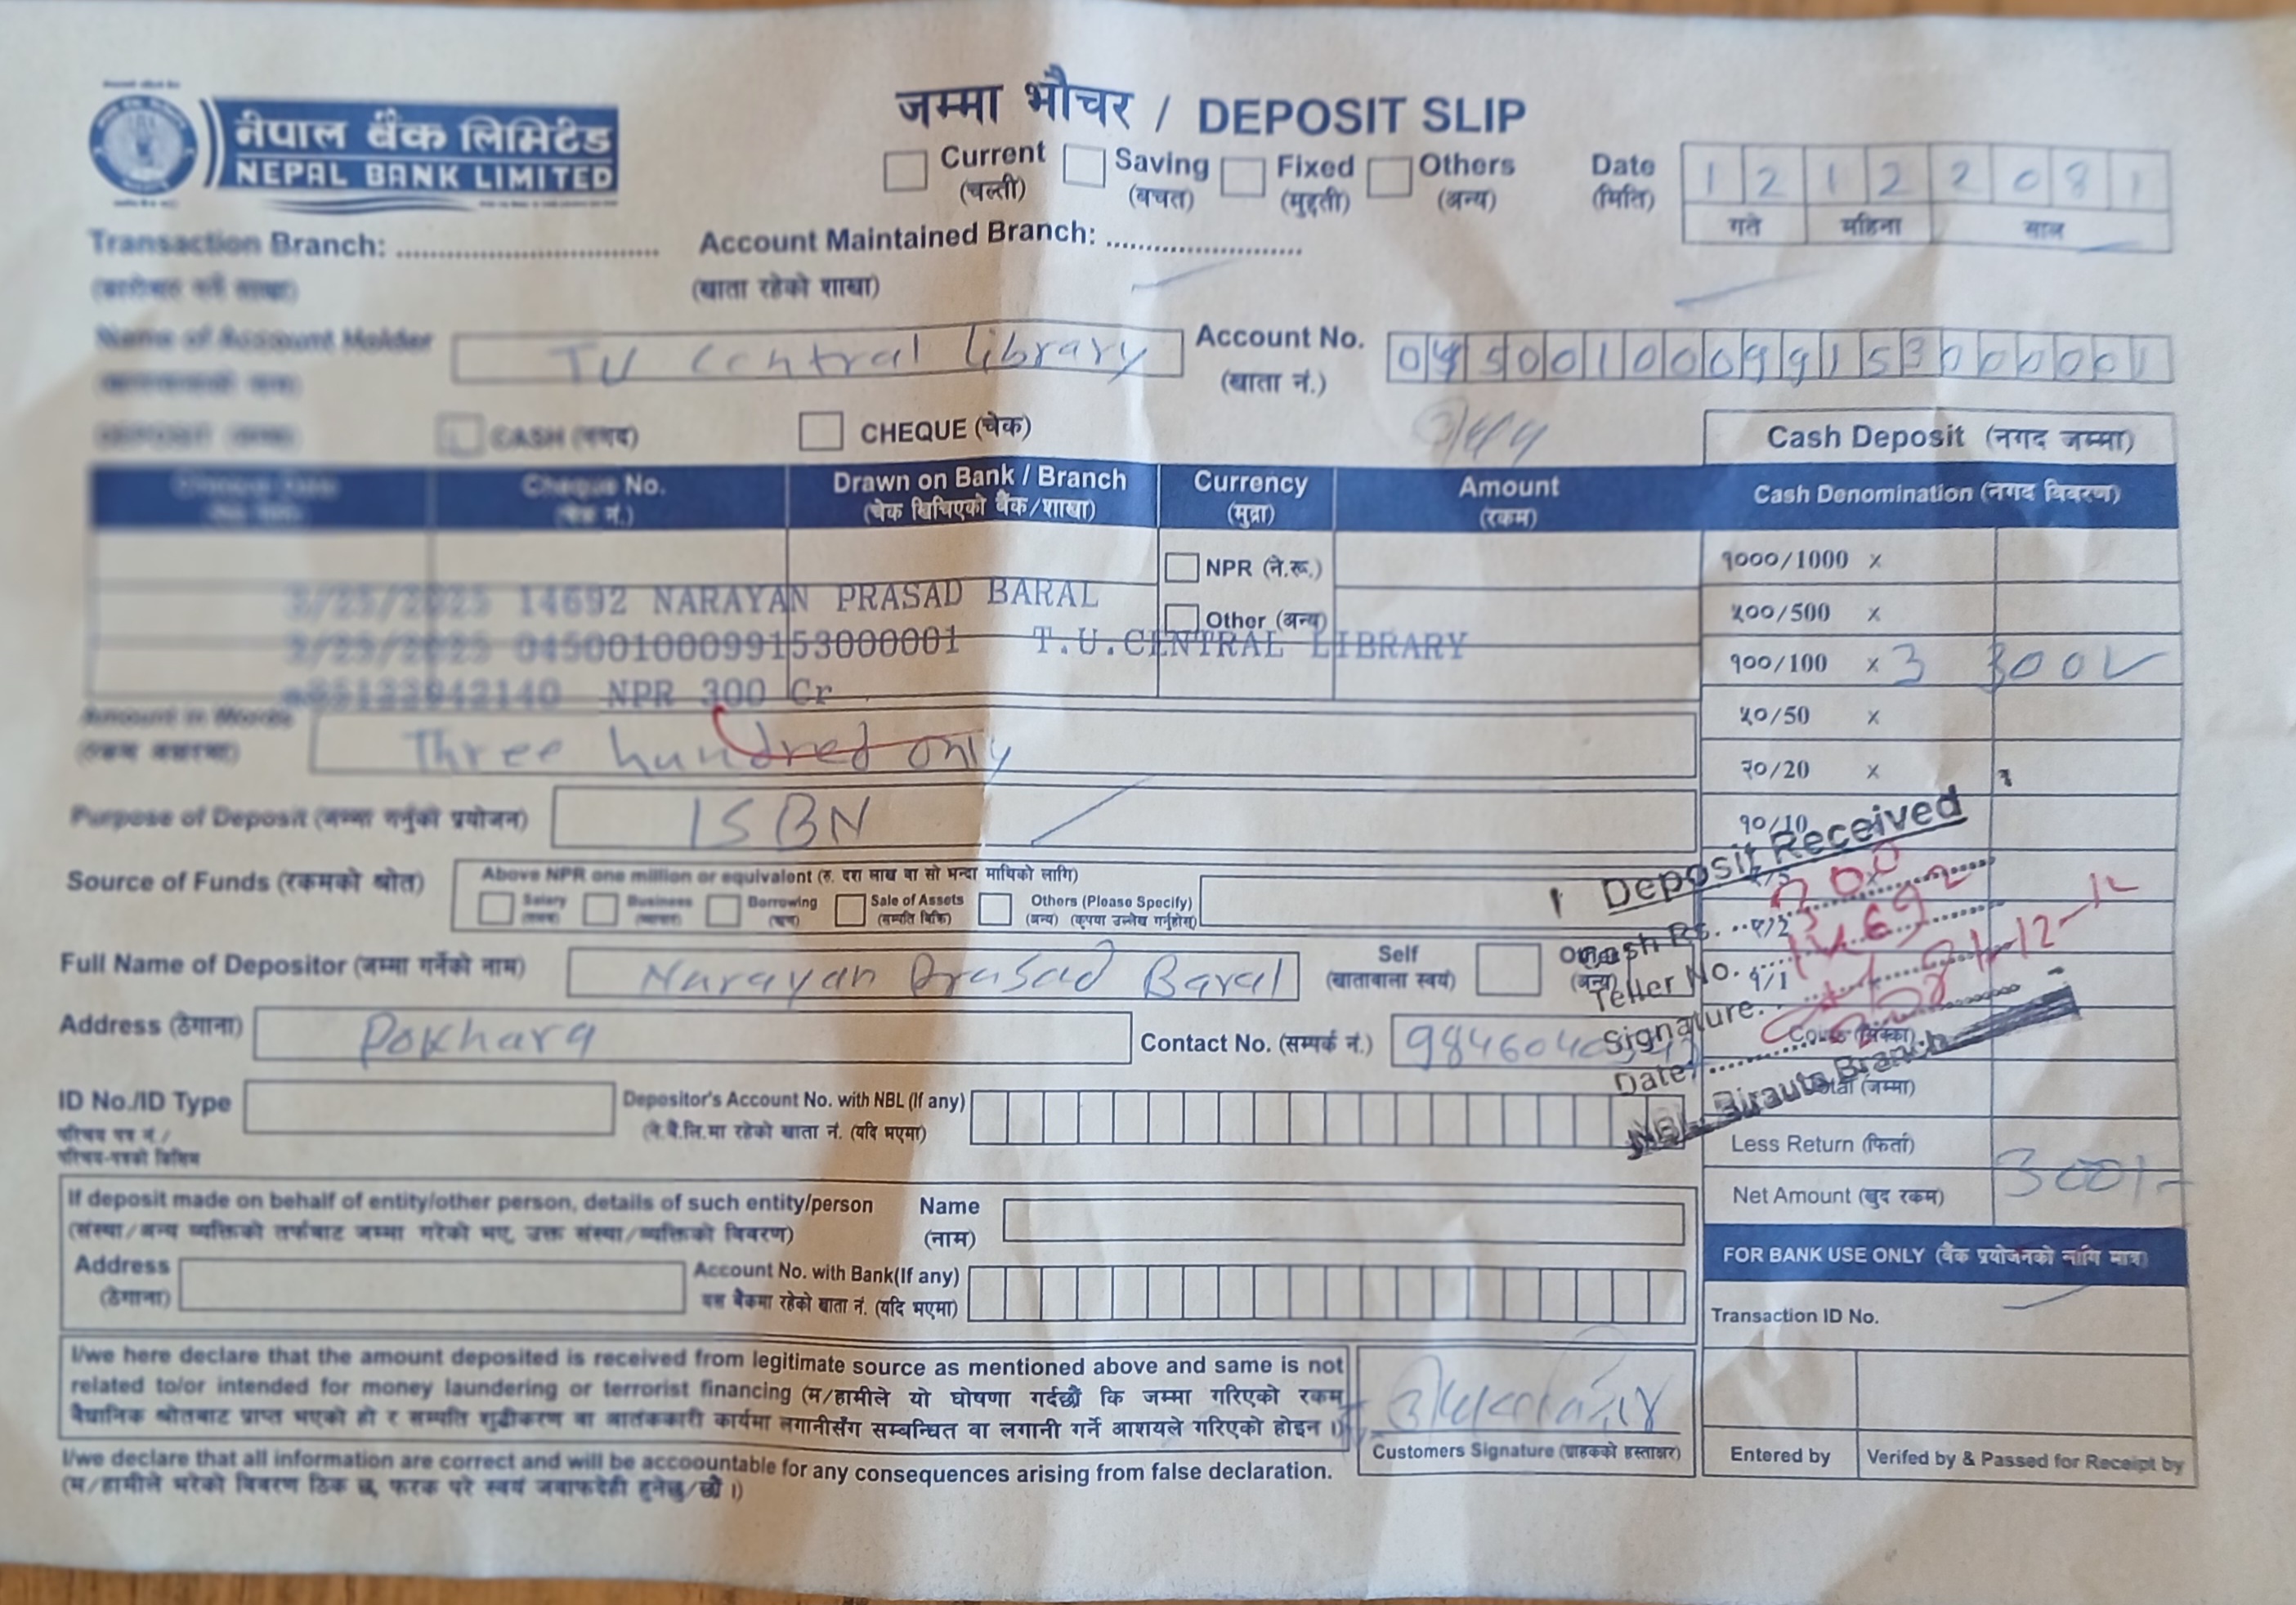 नेपाल बैंक लिमिटेड
NEPAL BANK LIMITED
जम्मा भौचर / DEPOSIT SLIP
Current (चल्ती) Saving (बचत) Fixed (मुद्दती) Others (अन्य)
Date (मिति) 1 2 1 2 2 0 8 1
गते महिना साल
Transaction Branch: Account Maintained Branch:
(खाता रहेको शाखा)
Name of Account Holder TU Central Library Account No. (खाता नं.) 04500100099153000001
DEPOSIT CASH (नगद) CHEQUE (चेक) Cash Deposit (नगद जम्मा)
Cheque No. (चेक नं.) Drawn on Bank / Branch (चेक खिचिएको बैंक/शाखा) Currency (मुद्रा) Amount (रकम) Cash Denomination (नगद विवरण)
NPR (ने.रू.) १०००/1000 x
14692 NARAYAN PRASAD BARAL
Other (अन्य) ५००/500 x
04500100099153000001 T.U.CENTRAL LIBRARY
१००/100 x 3 300
NPR 300 Cr
Amount in Words Three hundred only
५०/50 x
२०/20 x
Purpose of Deposit (जम्मा गर्नुको प्रयोजन) ISBN
१०/10
Source of Funds (रकमको श्रोत) Above NPR one million or equivalent (रु. दश लाख वा सो भन्दा माथिको लागि)
Salary Business Borrowing Sale of Assets (सम्पति बिक्रि) Others (Please Specify) (अन्य) (कृपया उल्लेख गर्नुहोस्)
Deposit Received
Cash Rs. 300
Teller No. 14692
Signature
Date 81-12-12
NBL. Birauta Branch
Full Name of Depositor (जम्मा गर्नेको नाम) Narayan Prasad Baral Self (खातावाला स्वयं)
१/1
Address (ठेगाना) Pokhara Contact No. (सम्पर्क नं.) 984604
ID No./ID Type Depositor's Account No. with NBL (If any)
(ने.बै.लि.मा रहेको खाता नं. (यदि भएमा)
(जम्मा)
Less Return (फिर्ता)
Net Amount (खुद रकम) 300/-
If deposit made on behalf of entity/other person, details of such entity/person Name (नाम)
(संस्था/अन्य व्यक्तिको तर्फबाट जम्मा गरेको भए, उक्त संस्था/व्यक्तिको विवरण)
Address (ठेगाना) Account No. with Bank(If any)
यस बैंकमा रहेको खाता नं. (यदि भएमा)
FOR BANK USE ONLY (बैंक प्रयोजनको लागि मात्र)
Transaction ID No.
I/we here declare that the amount deposited is received from legitimate source as mentioned above and same is not
related to/or intended for money laundering or terrorist financing (म/हामीले यो घोषणा गर्दछौं कि जम्मा गरिएको रकम
वैधानिक श्रोतबाट प्राप्त भएको हो र सम्पति शुद्धीकरण वा आतंककारी कार्यमा लगानीसँग सम्बन्धित वा लगानी गर्ने आशयले गरिएको होइन ।)
Customers Signature (ग्राहकको हस्ताक्षर) Entered by Verifed by & Passed for Receipt by
I/we declare that all information are correct and will be accoountable for any consequences arising from false declaration.
(म/हामीले भरेको विवरण ठिक छ, फरक परे स्वयं जवाफदेही हुनेछु/छौं ।)